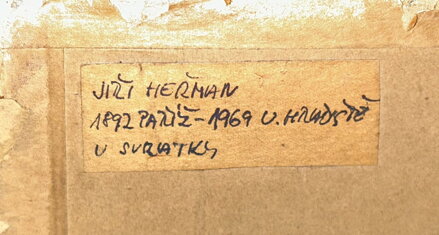 JIŘÍ HEŘMAN
1892 PAŘÍŽ - 1969 U. HRADIŠTĚ
U SVRATKY